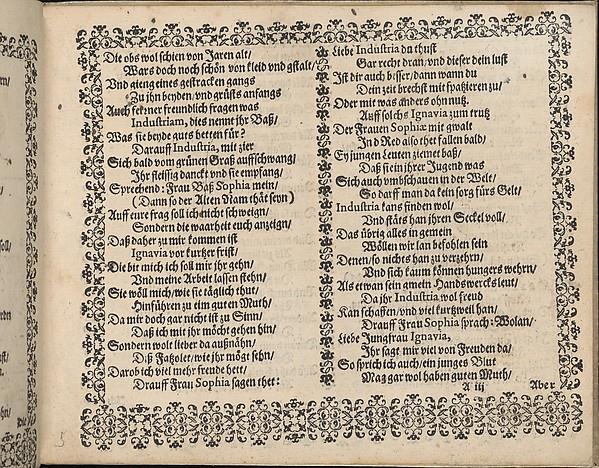 Die obs wol schien von Jaren alt/
Wars doch noch schön von kleid vnd gstalt/
Vnd gieng eines gestracken gangs
Zu jhn beyden/ vnd grüsts anfangs
Auch ferner freundlich fragen was
Industriam, dies nennt jhr Baß/
Was sie beyde guts hetten für?
Darauff Industria, mit zier
Sich bald vom grünen Graß auffschwang/
Ihr fleissig danckt vnd sie empfang/
Sprechend: Fraw Baß Sophia mein/
(Dann so der Alten Nam thät seyn)
Auff eure frag soll ich nicht schweign/
Sondern die waarheit euch anzeign/
Daß daher zu mir kommen ist
Ignavia vor kurtzer frist/
Die bit mich ich soll mit jhr gehn/
Vnd meine Arbeit lassen stehn/
Sie wöll mich/ wie sie täglich thut/
Hinführen zu eim guten Muth/
Da mir doch gar nicht ist zu Sinn/
Daß ich mit jhr möcht gehen hin/
Sondern wolt lieber da außnähn/
Diß Fatzolet/ wie jhr mögt sehn/
Darob ich viel mehr freude hett/
Drauff Fraw Sophia sagen thet:
Liebe Industria du thust
Gar recht dran/ vnd dieser dein lust
Ist dir auch besser/ dann wann du
Dein zeit brechst mit spatzieren zu/
Oder mit was anders ohn nutz.
Auff solchs Ignavia zum trutz
Der Frauen Sophiæ mit gwalt
In d Red also thet fallen bald/
Ey jungen Leuten ziemet baß/
Daß sie in jhrer Jugend was
Sich auch vmbschauen in der Welt/
So darff man da kein sorg fürs Gelt/
Industria kans finden wol/
Vnd stäts han jhren Seckel voll/
Das übrig alles in gemein
Wöllen wir lan befohlen sein
Denen/ so nichts han zu verzehrn/
Vnd sich kaum können hungers wehrn/
Als etwan sein gmein Handwercks leut/
Da jhr Industria wol freud
Kan schaffen/ vnd viel kurtzweil han/
Drauff Frau Sophia sprach: Wolan/
Liebe Jungfrau Ignavia,
Ihr sagt mir viel von Freuden da/
So sprich ich auch/ ein junges Blut
Mag gar wol haben guten Muth/
A iij Aber